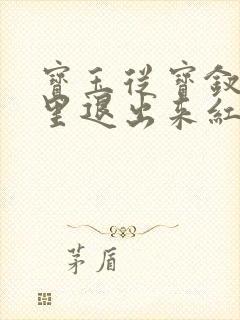 寶玉從寶釵
里退出來紅
茅盾